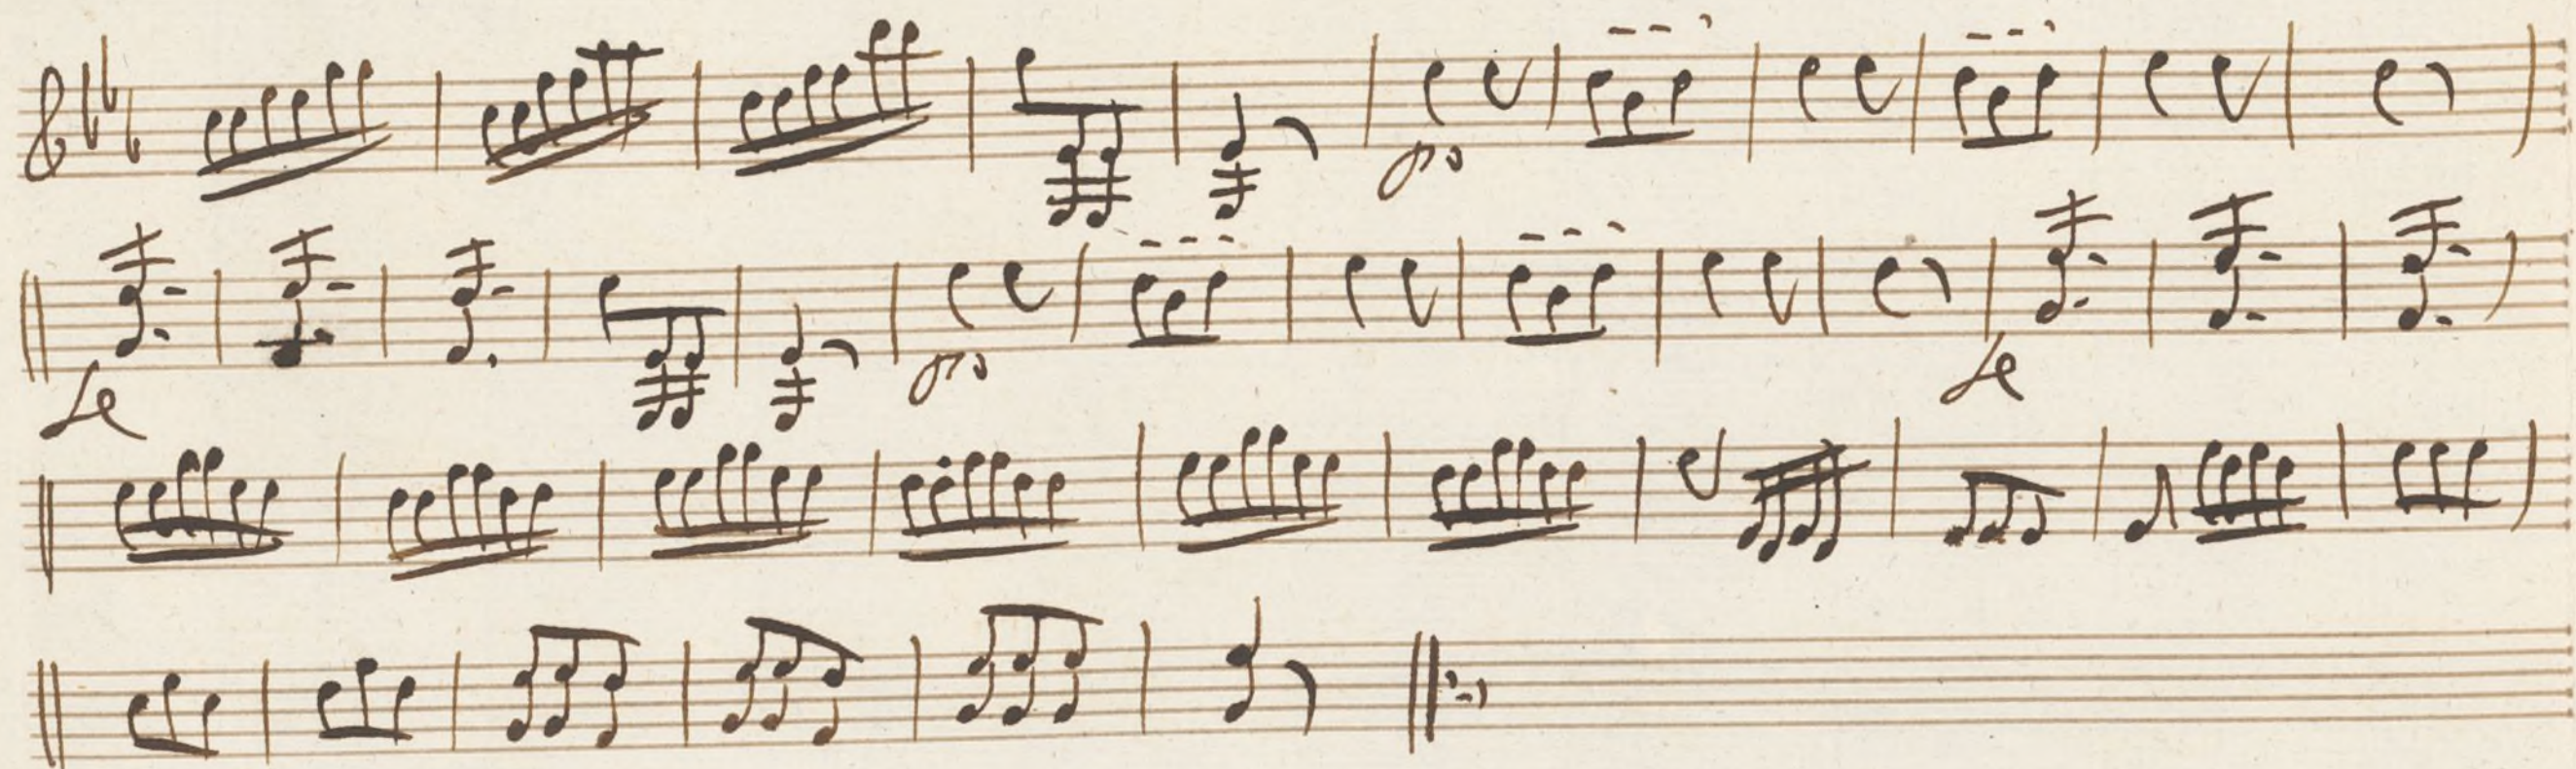 po
fe
po
fe